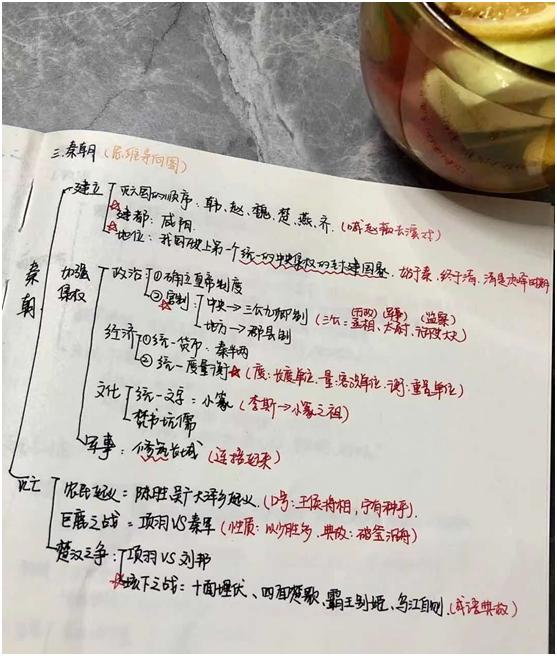 三.秦朝(思维导向图)
建立 灭六国的顺序:韩、赵、魏、楚、燕、齐.(喊赵薇去演戏)
☆建都:咸阳.
☆地位:我国历史上第一个统一的中央集权的封建国家.始于秦,终于清,清是
秦朝
加强集权 政治 ①确立皇帝制度
②☆官制 中央→三公九卿制 (三公:丞相、太尉、御史大夫)
(行政)(军事)(监察)
地方→郡县制
经济 ①统一货币:秦半两
②统一度量衡☆(度:长度单位.量:容积单位.衡:重量单位)
文化 统一文字:小篆(李斯→小篆之祖)
焚书坑儒
军事:修筑长城(连接起来)
灭亡 农民起义=陈胜吴广大泽乡起义.(口号:王侯将相,宁有种乎).
巨鹿之战=项羽VS秦军(性质:以少胜多,典故:破釜沉舟)
楚汉之争:项羽VS刘邦
☆垓下之战:十面埋伏、四面楚歌、霸王别姬、乌江自刎.(成语典故)